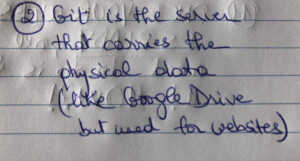 ② Git is the server
that carries the
physical data
(like Google Drive
but used for websites)